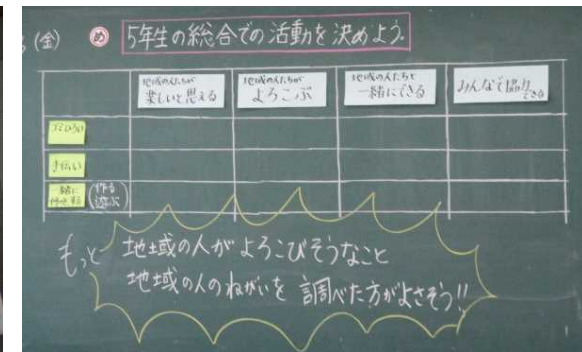 (金) め 5年生の総合での活動を決めよう。
地域の人たちが
楽しいと思える
地域の人たちが
よろこぶ
地域の人たちと
一緒にできる
みんなで協力
できる
ゴミひろい
手伝い
一緒に
何かをする
(作る
遊ぶ)
もっと 地域の人がよろこびそうなこと
地域の人のねがいを調べた方がよさそう!!